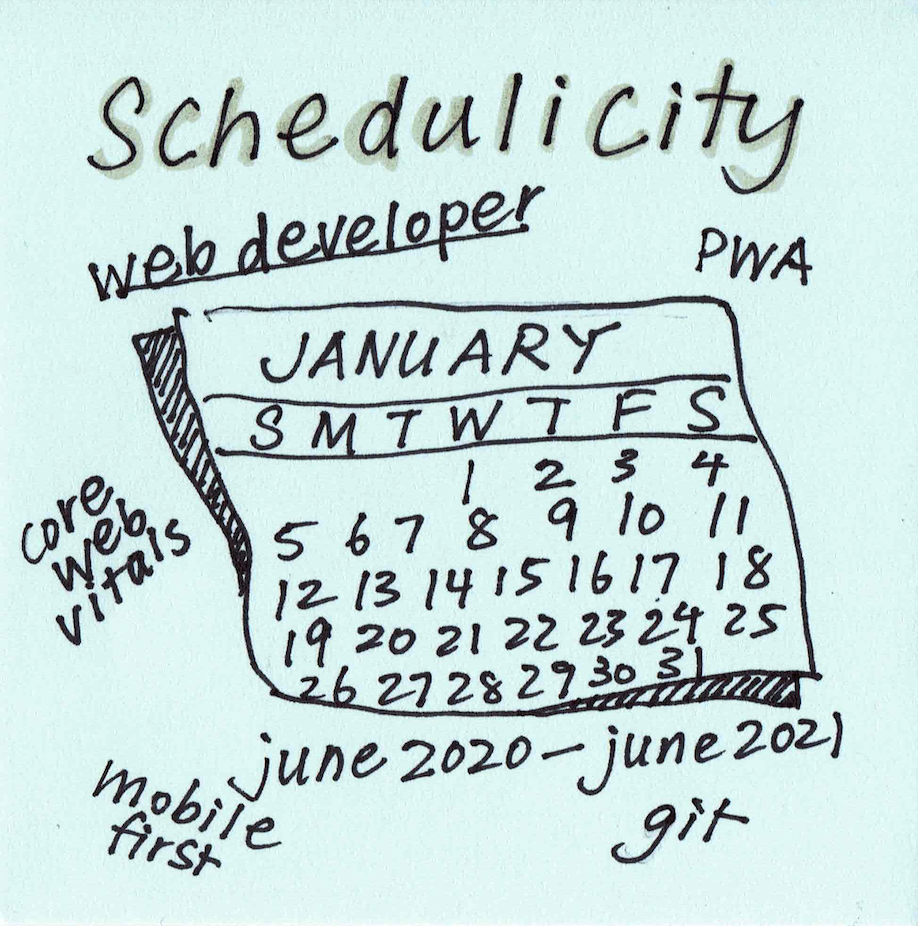 Schedulicity
web developer
PWA
JANUARY
S M T W T F S
1 2 3 4
5 6 7 8 9 10 11
12 13 14 15 16 17 18
19 20 21 22 23 24 25
26 27 28 29 30 31
core
web
vitals
june 2020 - june 2021
mobile
first
git